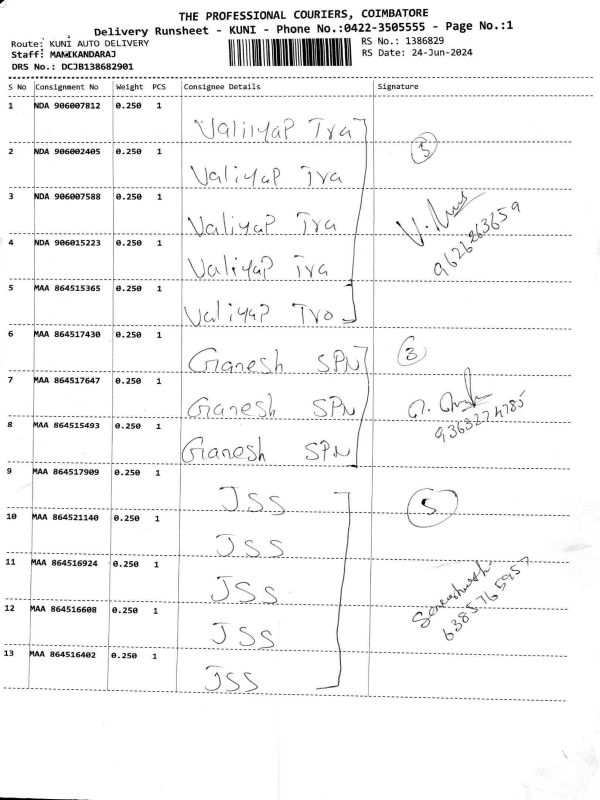 THE PROFESSIONAL COURIERS, COIMBATORE
Delivery Runsheet - KUNI - Phone No.:0422-3505555 - Page No.:1
Route: KUNI AUTO DELIVERY RS No.: 1386829
Staff: MANIKANDARAJ RS Date: 24-Jun-2024
DRS No.: DCJB138682901
S No Consignment No Weight PCS Consignee Details Signature
1 NDA 906007812 0.250 1 Valiyap Tra
2 NDA 906002405 0.250 1 Valiyap Tra 5
3 NDA 906007588 0.250 1 Valiyap Tra
4 NDA 906015223 0.250 1 Valiyap Tra 9626263659
5 MAA 864515365 0.250 1 Valiyap Tra
6 MAA 864517430 0.250 1 Ganesh SPN 3
7 MAA 864517647 0.250 1 Ganesh SPN
8 MAA 864515493 0.250 1 Ganesh SPN 9363274785
9 MAA 864517909 0.250 1 JSS 5
10 MAA 864521140 0.250 1 JSS
11 MAA 864516924 0.250 1 JSS
12 MAA 864516608 0.250 1 JSS 6385765957
13 MAA 864516402 0.250 1 JSS